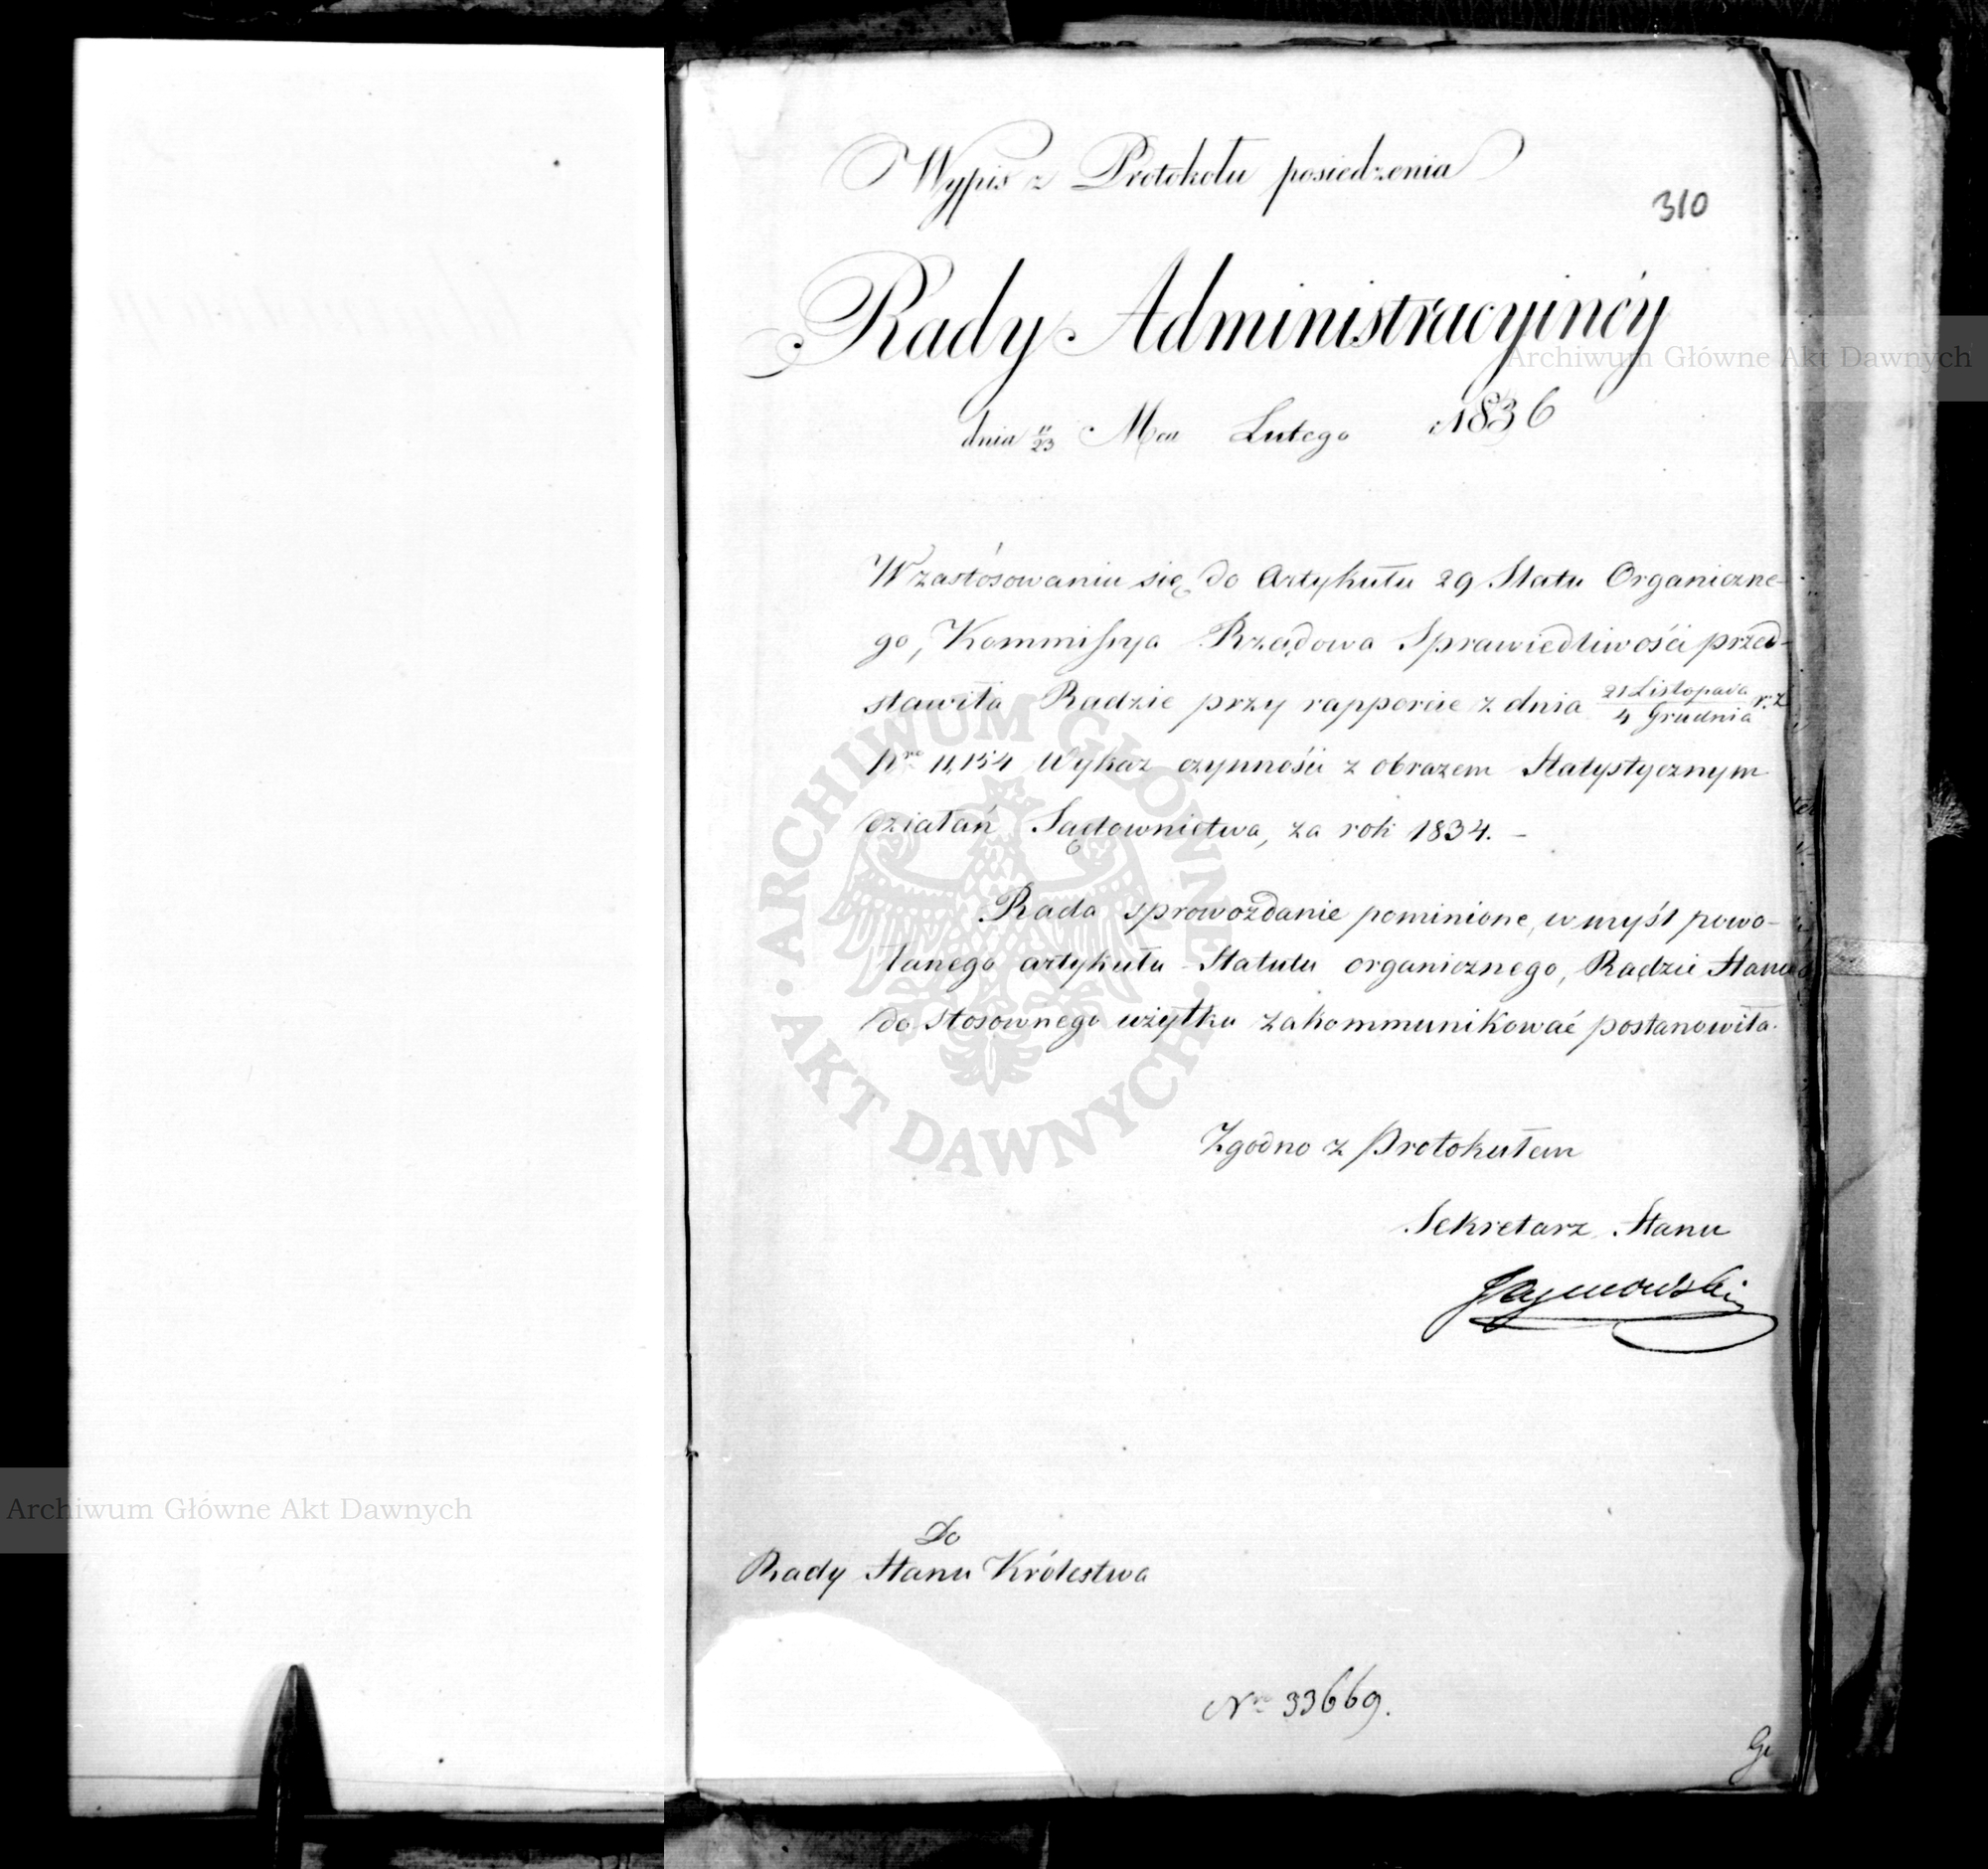 Wypis z Protokołu posiedzenia
310
Rady Administracyinéy
dnia 11/23 Mca Lutego 1836
W zastósowaniu się do Artykułu 29 Statu Organiczne-
go, Kommissya Rządowa Sprawiedliwości przed-
stawiła Radzie przy rapporcie z dnia 21 Listopada/4 Grudnia r. z.
Nro 11,154 Wykaz czynności z obrazem Statystycznym
działań Sądownictwa, za rok 1834. –
Rada sprawozdanie pominione, w myśl powo-
łanego artykułu Statutu organicznego, Radzie Stanu
do stosownego użytku zakommunikować postanowiła.
Zgodno z Protokułem
Sekretarz Stanu
Do
Rady Stanu Królestwa
Nro 33669.
Archiwum Główne Akt Dawnych
Archiwum Główne Akt Dawnych
ARCHIWUM GŁÓWNE
AKT DAWNYCH